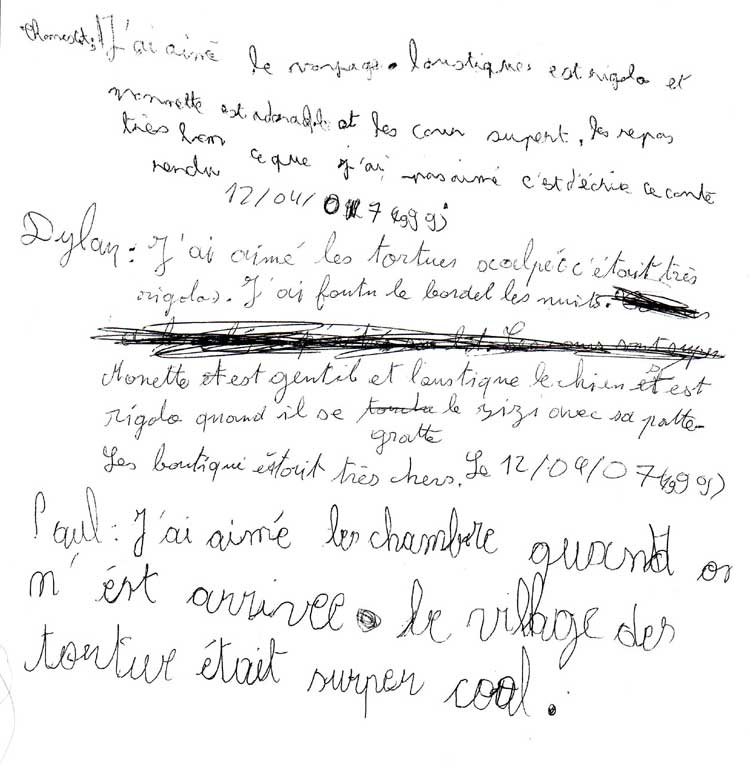 J'ai aimé le voyage. loustiques est rigolo et
monnette est adorable et les cour supert, les repas
très bien ce que j'ai pas aimé c'est d'écrire ce conte
rendu
12/04/07 1999)
Dylan: J'ai aimé les tortues scalpét c'était très
rigolos. J'ai foutu le bordel les nuits.
Monette est gentil et loustique le chien est
rigolo quand il se gratte le zizi avec sa patte.
Les boutiqui étoit très chers. Le 12/04/07 1999)
Paul: J'ai aimé les chambre quand on
n'ést arrivee. le village des
tortue était surper cool.